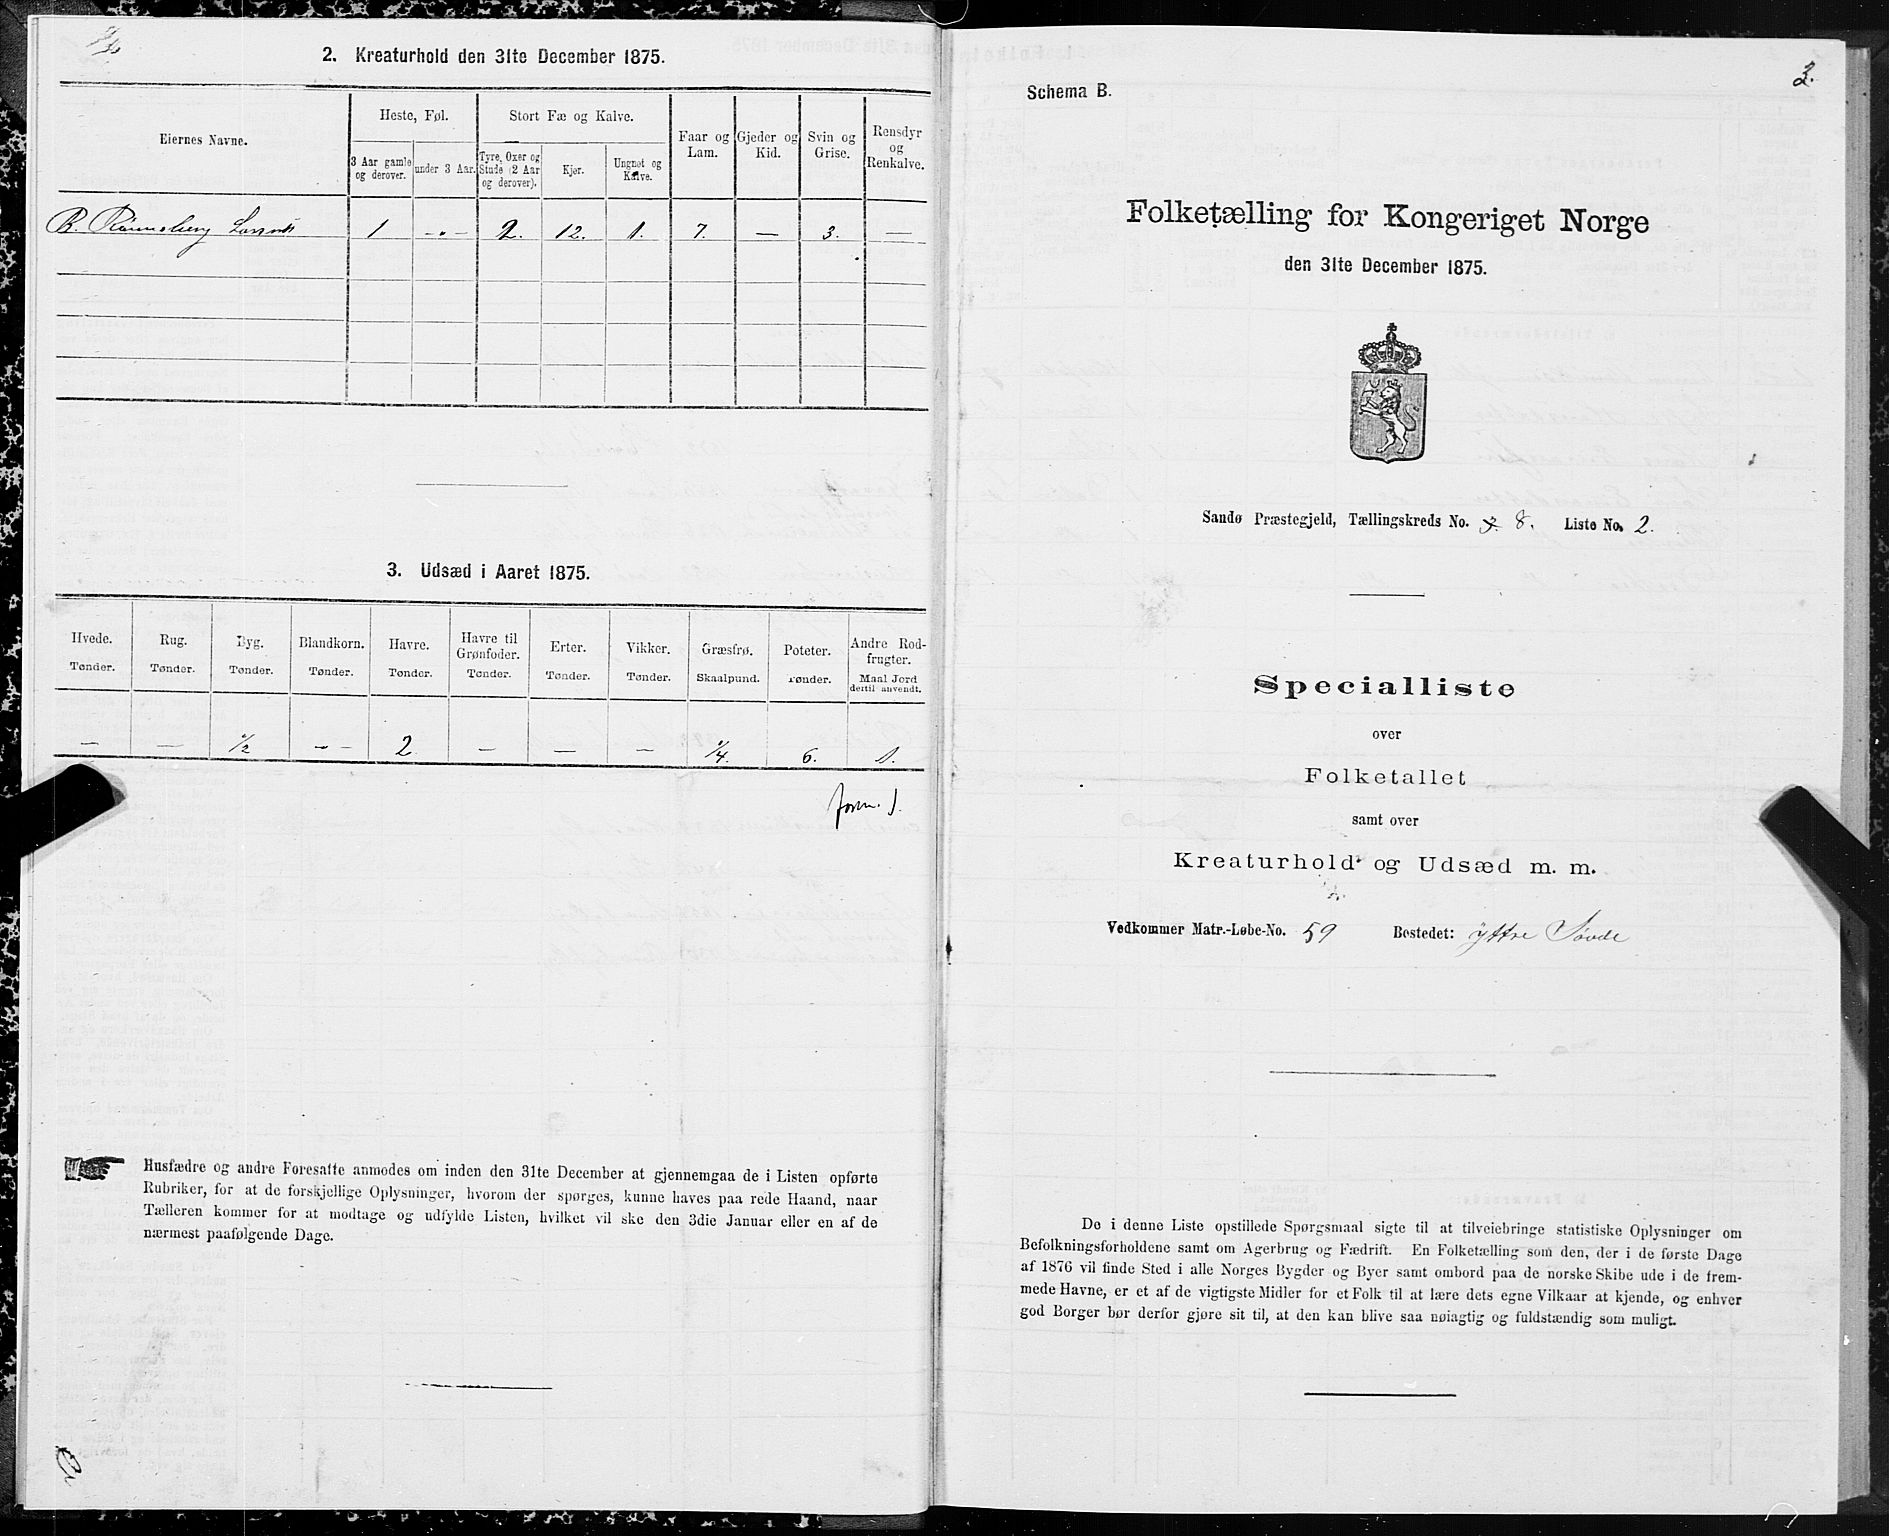 2. Kreaturhold den 31te December 1875.
Eiernes Navne.
Heste, Føl.
Stort Fæ og Kalve.
Faar og Lam.
Gjeder og Kid.
Svin og Grise.
Rensdyr og Renkalve.
3 Aar gamle og derover.
under 3 Aar.
Tyre, Oxer og Stude (2 Aar og derover).
Kjør.
Ungnøt og Kalve.
B. Rønneberg 1 - " - 2. 12. 1. 7. — 3. —
3. Udsæd i Aaret 1875.
Hvede. Tønder.
Rug. Tønder.
Byg. Tønder.
Blandkorn. Tønder.
Havre. Tønder.
Havre til Grønfoder. Tønder.
Erter. Tønder.
Vikker. Tønder.
Græsfrø. Skaalpund.
Poteter. Tønder.
Andre Rodfrugter. Maal Jord dertil anvendt.
— — 1/2 - " - 2 — — — 1/4. 6. 1.
Husfædre og andre Foresatte anmodes om inden den 31te December at gjennemgaa de i Listen opførte
Rubriker, for at de forskjellige Oplysninger, hvorom der spørges, kunne haves paa rede Haand, naar
Tælleren kommer for at modtage og udfylde Listen, hvilket vil ske den 3die Januar eller en af de
nærmest paafølgende Dage.
Schema B.
Folketælling for Kongeriget Norge
den 31te December 1875.
Sandø Præstegjeld, Tællingskreds No. 8. Liste No. 2.
Specialliste
over
Folketallet
samt over
Kreaturhold og Udsæd m. m.
Vedkommer Matr.-Løbe-No. 59 Bostedet: yttre Søvde
De i denne Liste opstillede Spørgsmaal sigte til at tilveiebringe statistiske Oplysninger om
Befolkningsforholdene samt om Agerbrug og Fædrift. En Folketælling som den, der i de første Dage
af 1876 vil finde Sted i alle Norges Bygder og Byer samt ombord paa de norske Skibe ude i de frem-
mede Havne, er et af de vigtigste Midler for et Folk til at lære dets egne Vilkaar at kjende, og enhver
god Borger bør derfor gjøre sit til, at den kan blive saa nøiagtig og fuldstændig som muligt.